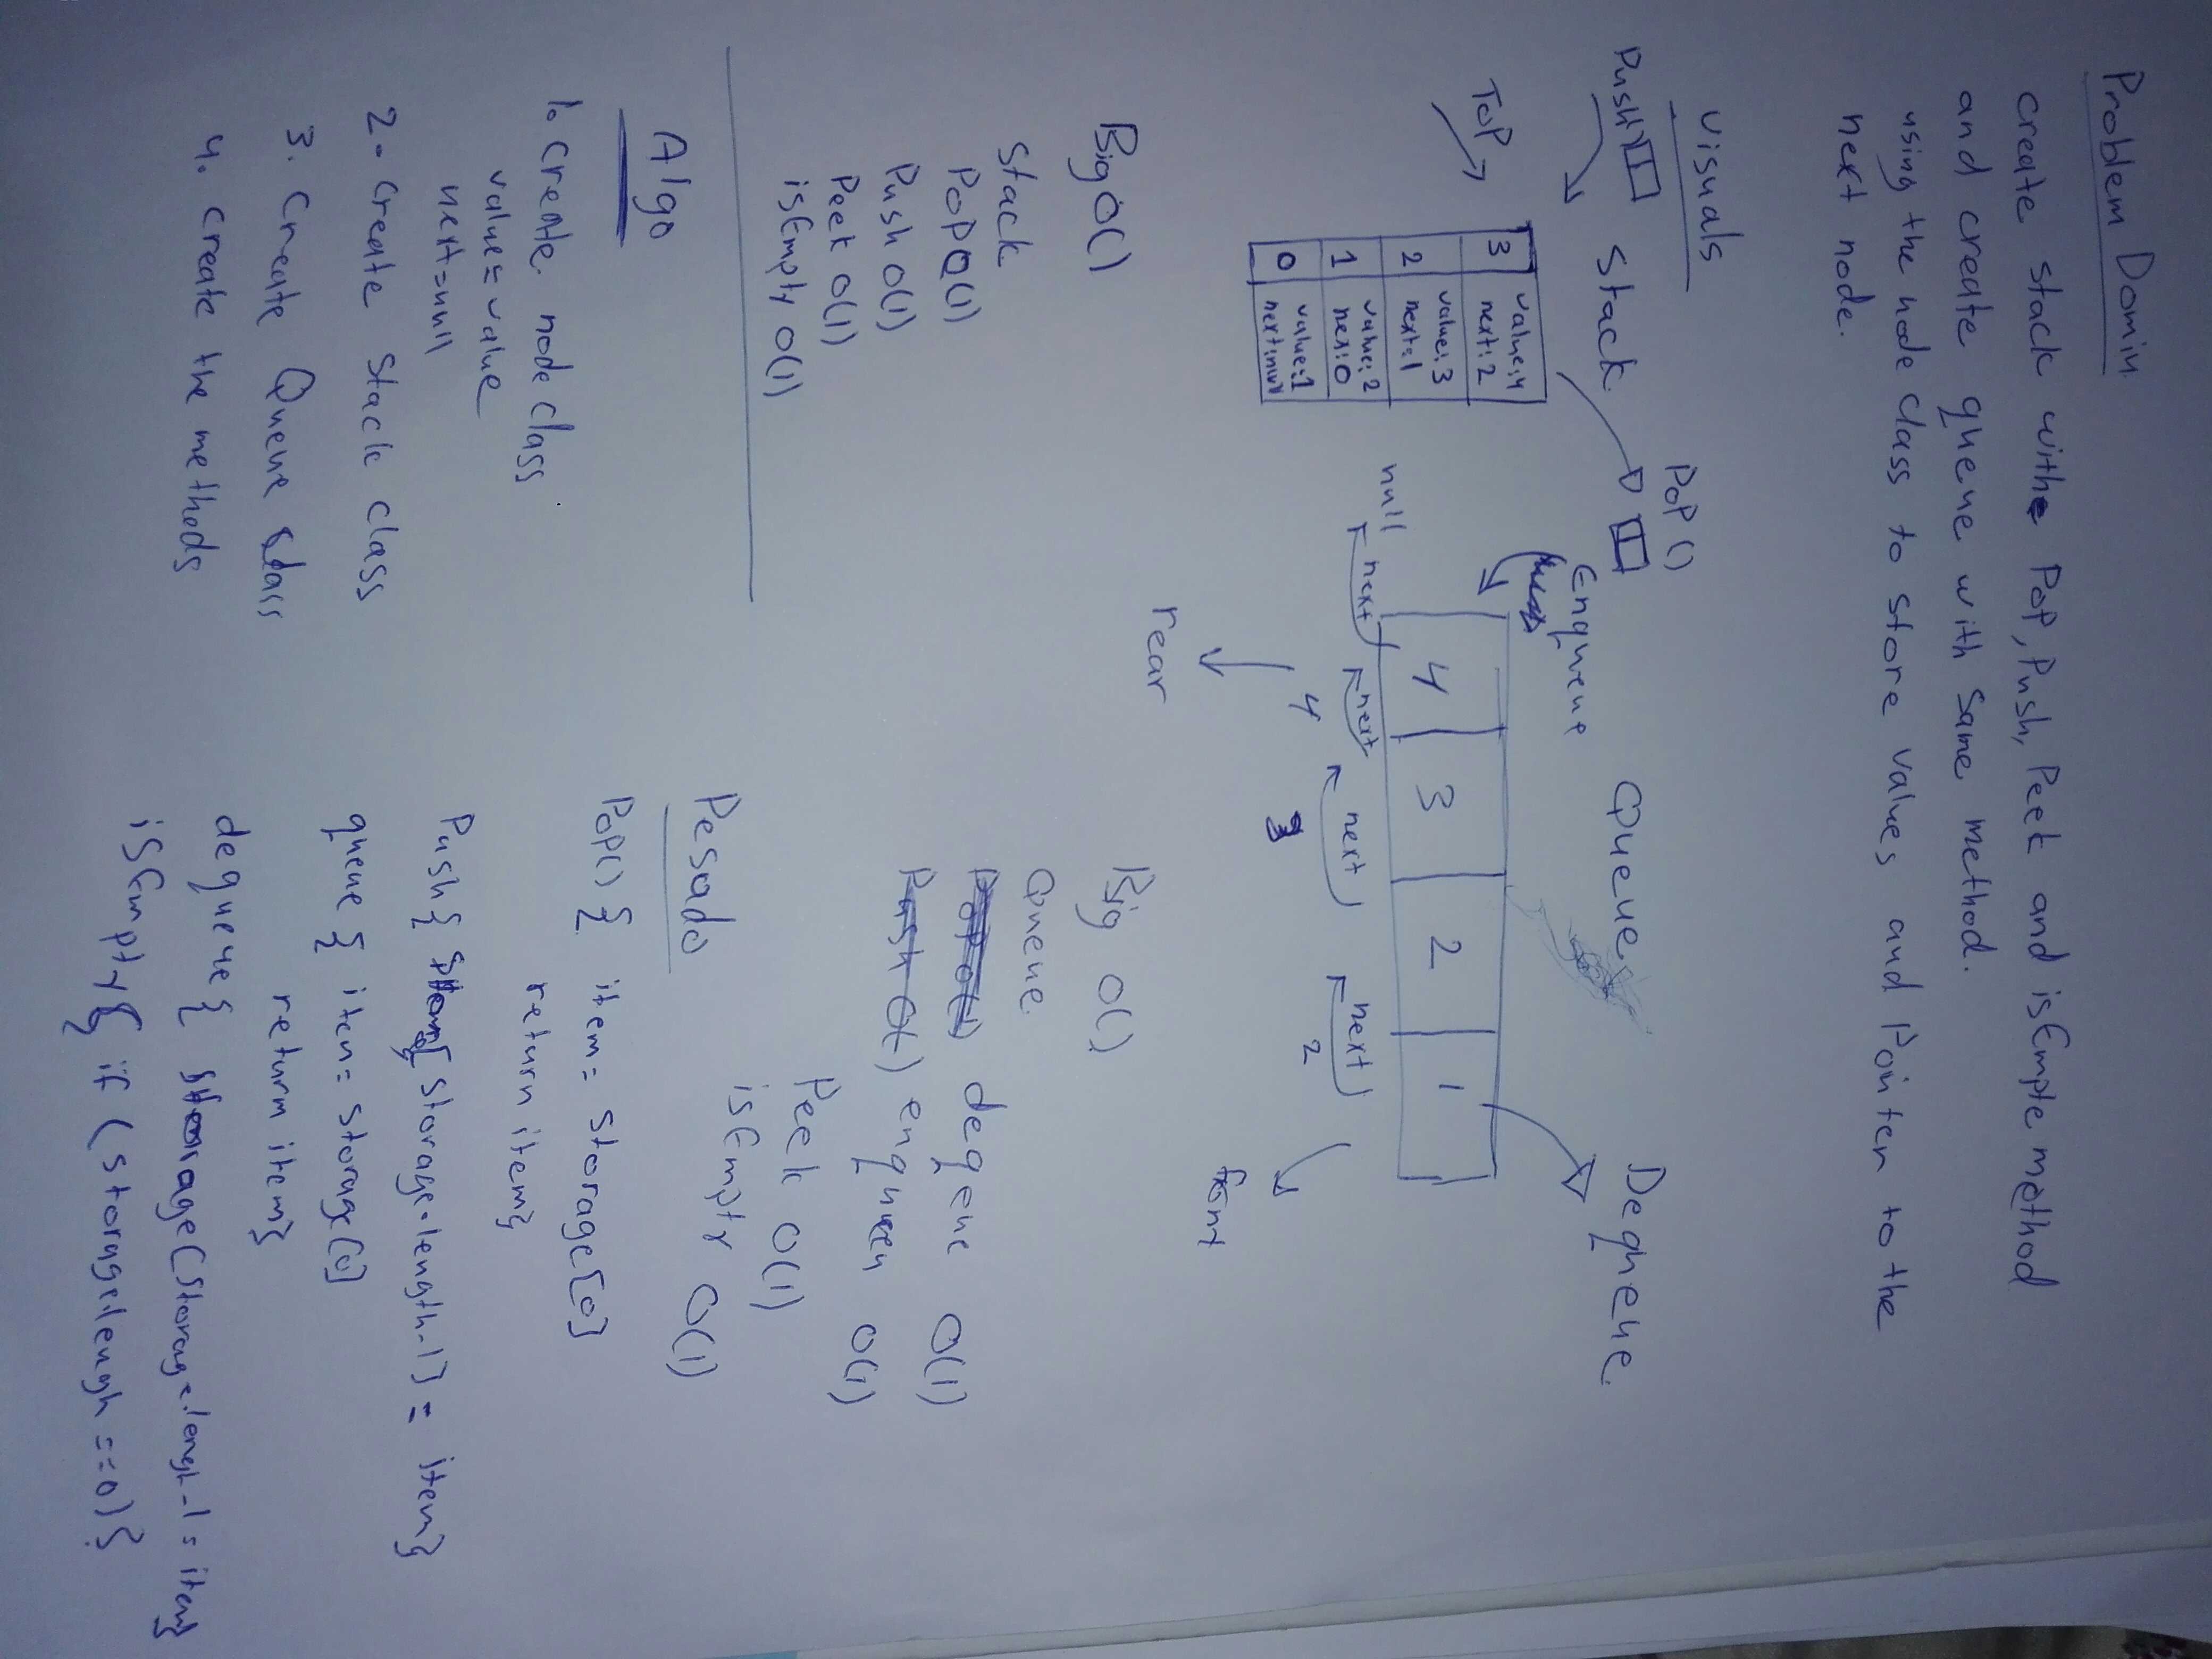 Problem Domin
create stack with Pop, Push, Peek and isEmpte method
and create queue with same method.
using the node class to store values and Pointer to the
next node.
visuals
Push
Stack
Pop ()
Enqueue
Queue
Dequeue
Top
3 value:4 next:2
2 value:3 next:1
1 value:2 nex:0
0 value:1 next:null
null
4 3 2 1
next next next next
4 3 2
rear
front
Big O()
Stack
Pop O(1)
Push O(1)
Peek O(1)
isEmpty O(1)
Big O()
Queue
deqeue O(1)
O(1)
Peek O(1)
isEmpty O(1)
Algo
1. create node class
value = value
next = null
2 - create Stack class
3. Create Queue class
4. create the methods
Pesado
Pop() { item = storage[0]
return item}
Push{ storage.length-1] = item}
queue { item = storage[0]
return item}
dequeue { storage[storage.lengt-1 = item}
isEmpty{ if (storage.lengh ==0)}